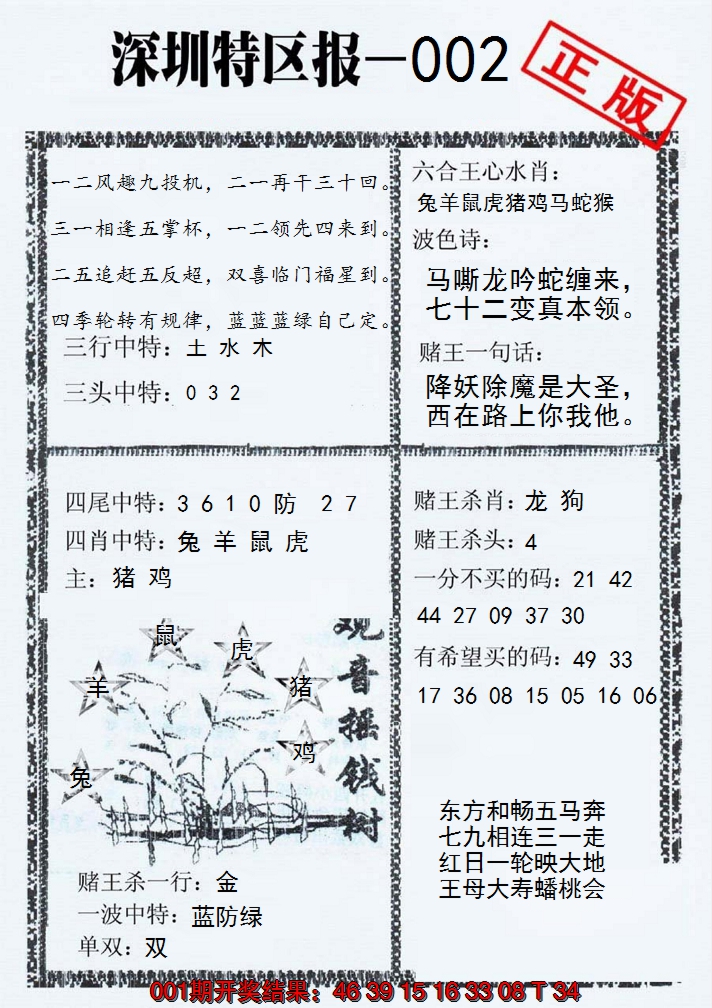 深圳特区报—002
正版
一二风趣九投机，二一再干三十回。
三一相逢五掌杯，一二领先四来到。
二五追赶五反超，双喜临门福星到。
四季轮转有规律，蓝蓝蓝绿自己定。
三行中特：土 水 木
三头中特：0 3 2
六合王心水肖：
兔羊鼠虎猪鸡马蛇猴
波色诗：
马嘶龙吟蛇缠来，
七十二变真本领。
赌王一句话：
降妖除魔是大圣，
西在路上你我他。
四尾中特：3 6 1 0 防 2 7
四肖中特：兔 羊 鼠 虎
主：猪 鸡
观音摇钱树
鼠
虎
羊
猪
鸡
兔
赌王杀一行：金
一波中特：蓝防绿
单双：双
赌王杀肖：龙 狗
赌王杀头：4
一分不买的码：21 42
44 27 09 37 30
有希望买的码：49 33
17 36 08 15 05 16 06
东方和畅五马奔
七九相连三一走
红日一轮映大地
王母大寿蟠桃会
001期开奖结果：46 39 15 16 33 08 T 34